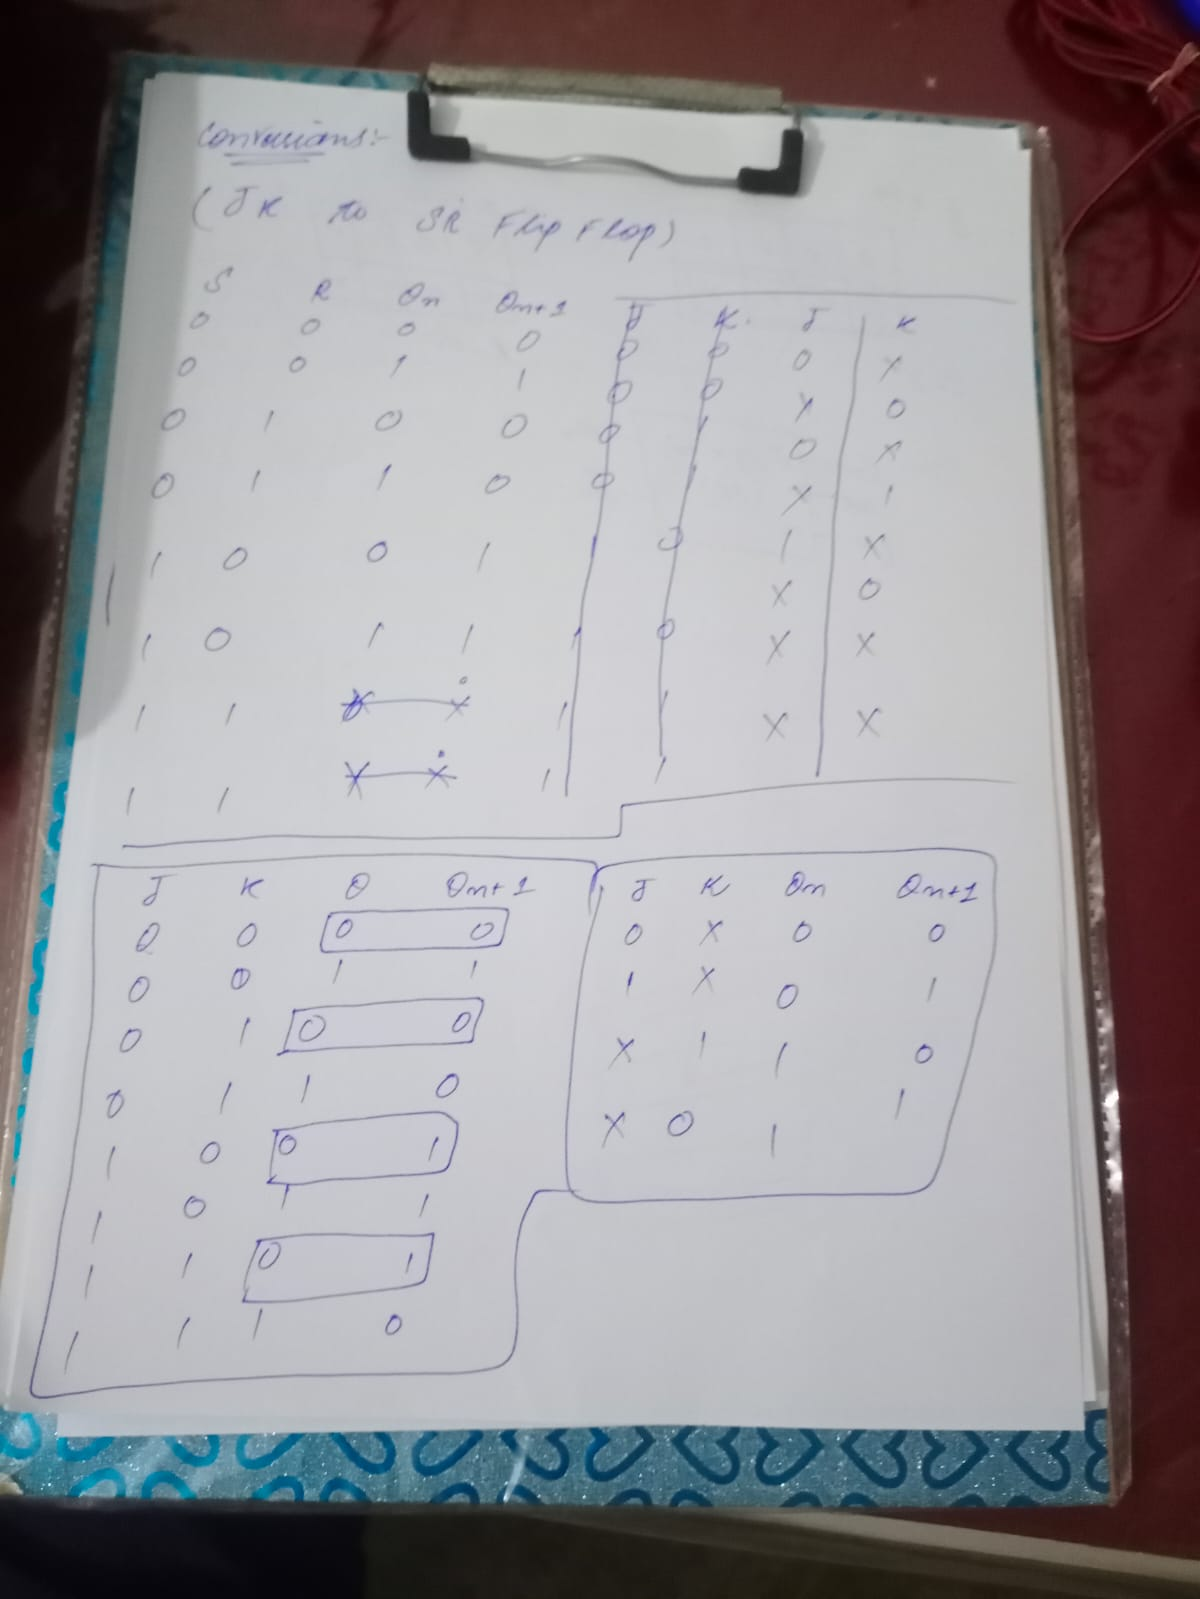 Conversions:-
(JK to SR Flip Flop)
S R Qn Qn+1 J K J K
0 0 0 0 0 0 0 X
0 0 1 1 0 0 X 0
0 1 0 0 0 1 0 X
0 1 1 0 0 1 X 1
1 0 0 1 1 0 1 X
1 0 1 1 1 0 X 0
1 1 X X 1 1 X X
1 1 X X 1 1 X X
J K Q Qn+1
0 0 0 0
0 0 1 1
0 1 0 0
0 1 1 0
1 0 0 1
1 0 1 1
1 1 0 1
1 1 1 0
J K Qn Qn+1
0 X 0 0
1 X 0 1
X 1 1 0
X 0 1 1